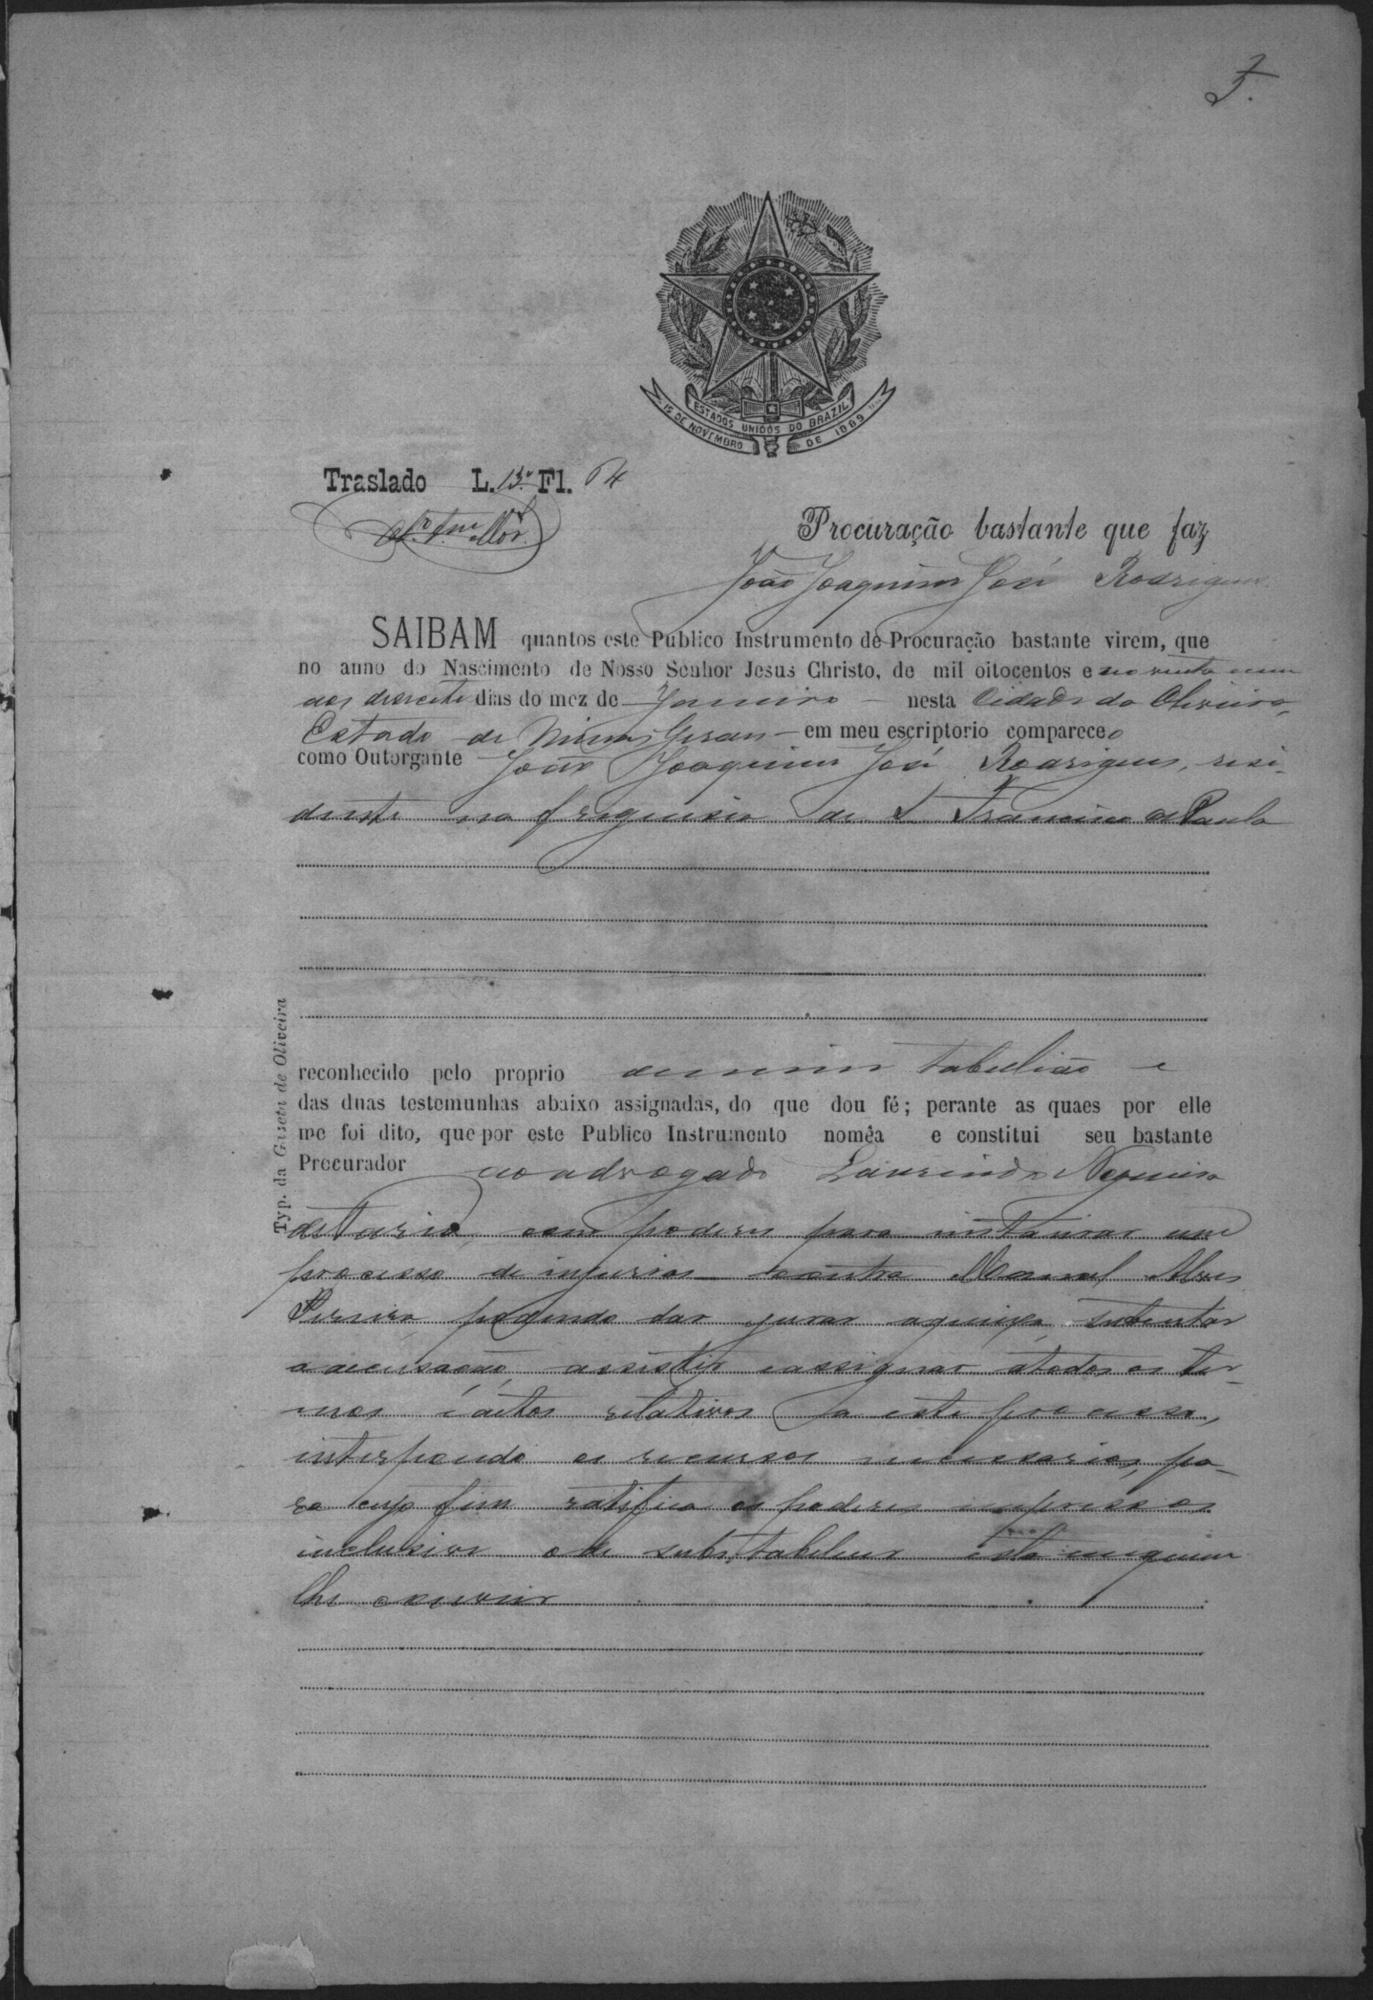 5.
ESTADOS UNIDOS DO BRAZIL
15 DE NOVEMBRO DE 1889
Traslado L. 13º Fl. 64
Procuração bastante que faz
João Joaquim José Rodrigues
SAIBAM quantos este Publico Instrumento de Procuração bastante virem, que
no anno do Nascimento de Nosso Senhor Jesus Christo, de mil oitocentos e noventa e um
aos dezesete dias do mez de Janeiro nesta Cidade da Oliveira,
Estado de Minas Geraes em meu escriptorio comparece o
como Outorgante João Joaquim José Rodrigues, resi-
dente na freguesia de S Francisco de Paula
reconhecido pelo proprio de mim tabelião e
das duas testemunhas abaixo assignadas, do que dou fé; perante as quaes por elle
me foi dito, que por este Publico Instrumento noméa e constitui seu bastante
Procurador ao advogado Laurindo Nogueira
com poderes para instaurar um
processo de injurias contra Manoel Alves
Pereira, podendo dar jurar a queixa, sustentar
a accusação, assistir e assignar a todos os ter-
mos e autos relativos a este processo,
interpondo os recursos necessarios, pa-
ra cujo fim ratifica os poderes impressos
inclusive o de substabelecer esta em quem
lhe convier
Typ. da Gazeta de Oliveira